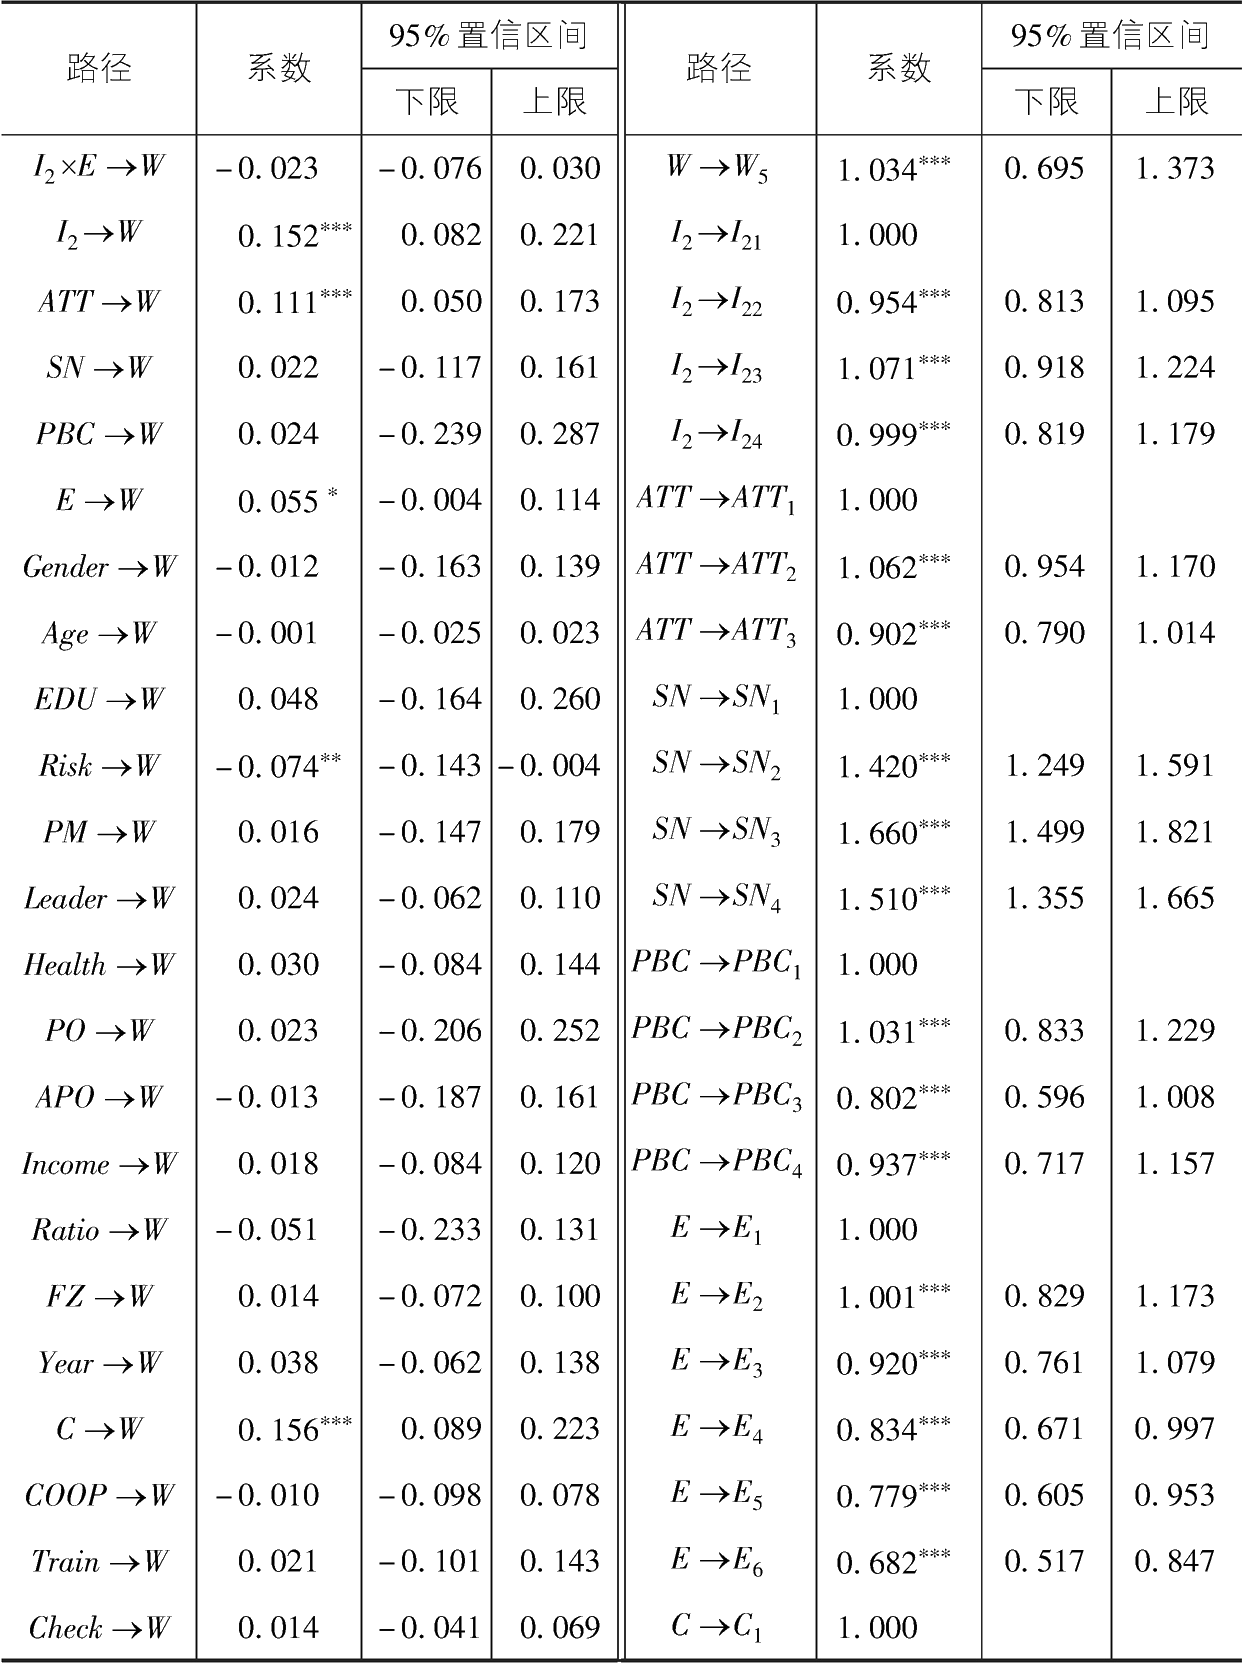 路径 系数 95%置信区间 路径 系数 95%置信区间
下限 上限 下限 上限
I2×E→W -0.023 -0.076 0.030 W→W5 1.034*** 0.695 1.373
I2→W 0.152*** 0.082 0.221 I2→I21 1.000
ATT→W 0.111*** 0.050 0.173 I2→I22 0.954*** 0.813 1.095
SN→W 0.022 -0.117 0.161 I2→I23 1.071*** 0.918 1.224
PBC→W 0.024 -0.239 0.287 I2→I24 0.999*** 0.819 1.179
E→W 0.055* -0.004 0.114 ATT→ATT1 1.000
Gender→W -0.012 -0.163 0.139 ATT→ATT2 1.062*** 0.954 1.170
Age→W -0.001 -0.025 0.023 ATT→ATT3 0.902*** 0.790 1.014
EDU→W 0.048 -0.164 0.260 SN→SN1 1.000
Risk→W -0.074** -0.143 -0.004 SN→SN2 1.420*** 1.249 1.591
PM→W 0.016 -0.147 0.179 SN→SN3 1.660*** 1.499 1.821
Leader→W 0.024 -0.062 0.110 SN→SN4 1.510*** 1.355 1.665
Health→W 0.030 -0.084 0.144 PBC→PBC1 1.000
PO→W 0.023 -0.206 0.252 PBC→PBC2 1.031*** 0.833 1.229
APO→W -0.013 -0.187 0.161 PBC→PBC3 0.802*** 0.596 1.008
Income→W 0.018 -0.084 0.120 PBC→PBC4 0.937*** 0.717 1.157
Ratio→W -0.051 -0.233 0.131 E→E1 1.000
FZ→W 0.014 -0.072 0.100 E→E2 1.001*** 0.829 1.173
Year→W 0.038 -0.062 0.138 E→E3 0.920*** 0.761 1.079
C→W 0.156*** 0.089 0.223 E→E4 0.834*** 0.671 0.997
COOP→W -0.010 -0.098 0.078 E→E5 0.779*** 0.605 0.953
Train→W 0.021 -0.101 0.143 E→E6 0.682*** 0.517 0.847
Check→W 0.014 -0.041 0.069 C→C1 1.000